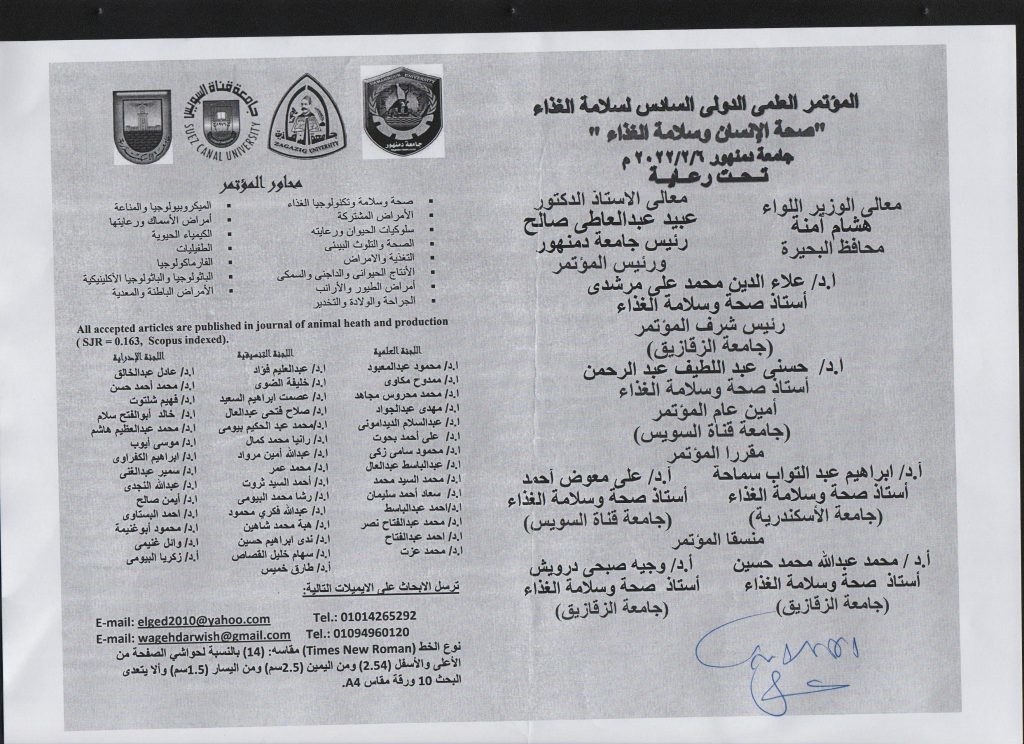 المؤتمر العلمى الدولى السادس لسلامة الغذاء
"صحة الإنسان وسلامة الغذاء"
جامعة دمنهور ٢٠٢٢/٢/٦ م
تحت رعاية
معالى الوزير اللواء
هشام آمنة
محافظ البحيرة
معالى الاستاذ الدكتور
عبيد عبدالعاطى صالح
رئيس جامعة دمنهور
ورئيس المؤتمر
ا.د/ علاء الدين محمد على مرشدى
أستاذ صحة وسلامة الغذاء
رئيس شرف المؤتمر
(جامعة الزقازيق)
ا.د/ حسنى عبد اللطيف عبد الرحمن
أستاذ صحة وسلامة الغذاء
أمين عام المؤتمر
(جامعة قناة السويس)
مقررا المؤتمر
أ.د/ ابراهيم عبد التواب سماحة
أستاذ صحة وسلامة الغذاء
(جامعة الأسكندرية)
أ.د/ على معوض أحمد
أستاذ صحة وسلامة الغذاء
(جامعة قناة السويس)
منسقا المؤتمر
أ.د / محمد عبدالله محمد حسين
أستاذ صحة وسلامة الغذاء
(جامعة الزقازيق)
أ.د/ وجيه صبحى درويش
أستاذ صحة وسلامة الغذاء
(جامعة الزقازيق)
DAMANHOUR UNIVERSITY
جامعة دمنهور
جامعة الزقازيق
ZAGAZIG UNIVERSITY
جامعة قناة السويس
SUEZ CANAL UNIVERSITY
محاور المؤتمر
▪ صحة وسلامة وتكنولوجيا الغذاء
▪ الأمراض المشتركة
▪ سلوكيات الحيوان ورعايته
▪ الصحة والتلوث البيئى
▪ التغذية والامراض
▪ الأنتاج الحيوانى والداجنى والسمكى
▪ أمراض الطيور والأرانب
▪ الجراحة والولادة والتخدير
▪ الميكروبيولوجيا والمناعة
▪ أمراض الأسماك ورعايتها
▪ الكيمياء الحيوية
▪ الطفيليات
▪ الفارماكولوجيا
▪ الباثولوجيا والباثولوجيا الأكلينيكية
▪ الأمراض الباطنة والمعدية
All accepted articles are published in journal of animal heath and production
( SJR = 0.163, Scopus indexed).
اللجنة العلمية
ا.د/ محمود عبدالمعبود
ا.د/ ممدوح مكاوى
ا.د/ محمد محروس مجاهد
ا.د/ مهدى عبدالجواد
ا.د/ عبدالسلام الديدامونى
ا.د/ على أحمد بحوت
ا.د/ محمود سامى زكى
ا.د/ عبدالباسط عبدالعال
ا.د/ محمد السيد محمد
ا.د/ سعاد أحمد سليمان
ا.د/احمد عبدالباسط
ا.د/ محمد عبدالفتاح نصر
ا.د/ احمد عبدالفتاح
ا.د/ محمد عزت
اللجنة التنسيقية
ا.د/ عبدالعليم فؤاد
ا.د/ خليفة الضوى
ا.د/ عصمت ابراهيم السعيد
ا.د/ صلاح فتحى عبدالعال
ا.د/محمد عبد الحكيم بيومى
ا.د/ رانيا محمد كمال
ا.د/ عبدالله أمين مرواد
ا.د/ محمد عمر
ا.د/ أحمد السيد ثروت
ا.د/ رشا محمد البيومى
ا.د/ عبدالله فكري محمود
ا.د/ هبة محمد شاهين
ا.د/ ندى ابراهيم حسين
ا.د/ سهام خليل القصاص
أ.د/ طارق خميس
اللجنة الإدراية
ا.د/ عادل عبدالخالق
ا.د/ محمد أحمد حسن
ا.د/ فهيم شلتوت
ا.د/ خالد أبوالفتح سلام
ا.د/ محمد عبدالعظيم هاشم
ا.د/ موسى أيوب
ا.د/ ابراهيم الكفراوى
ا.د/ سمير عبدالغنى
ا.د/ عبدالله النجدى
ا.د/ أيمن صالح
ا.د/ احمد البستاوى
ا.د/ محمود أبوغنيمة
ا.د/ وائل غنيمى
أ.د/ زكريا البيومى
ترسل الابحاث على الايميلات التالية:
E-mail: elged2010@yahoo.com Tel.: 01014265292
E-mail: wagehdarwish@gmail.com Tel.: 01094960120
نوع الخط (Times New Roman) مقاسه: (14) بالنسبة لحواشي الصفحة من
الأعلى والأسفل (2.54) ومن اليمين (2.5سم) ومن اليسار (1.5سم) وألا يتعدى
البحث 10 ورقة مقاس A4.